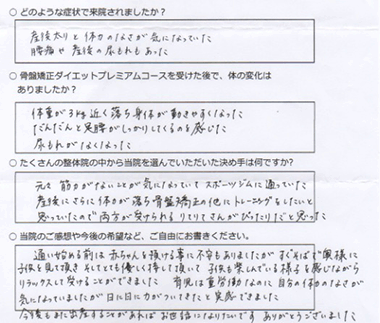 ○ どのような症状で来院されましたか?
産後太りと体力のなさが気になっていた
腰痛や産後の尿もれもあった
○ 骨盤矯正ダイエットプレミアムコースを受けた後で、体の変化は
ありましたか?
体重が3kg近く落ち身体が動きやすくなった
だんだんと足腰がしっかりしてくるのを感じた
尿もれがなくなった
○ たくさんの整体院の中から当院を選んでいただいた決め手は何ですか?
元々筋力がないことが気になっていてスポーツジムに通っていた
産後にさらに体力が落ち骨盤矯正の他にトレーニングもしたいと
思っていたので両方が受けられるりそりてさんがぴったりだと思った
○ 当院のご感想や今後の希望など、ご自由にお書きください。
通い始める前は赤ちゃんを預ける事に不安もありましたがすぐそばで奥様に
子供を見て頂きそしてとても優しく接して頂いて子供も楽しんでいる様子を感じながら
リラックスして受けることができました 育児は重労働なのに自分の体力のなさが
気になっていましたが日に日に力がついてきたと実感できました
今後もまた出産することがあればお世話になりたいです ありがとうございました